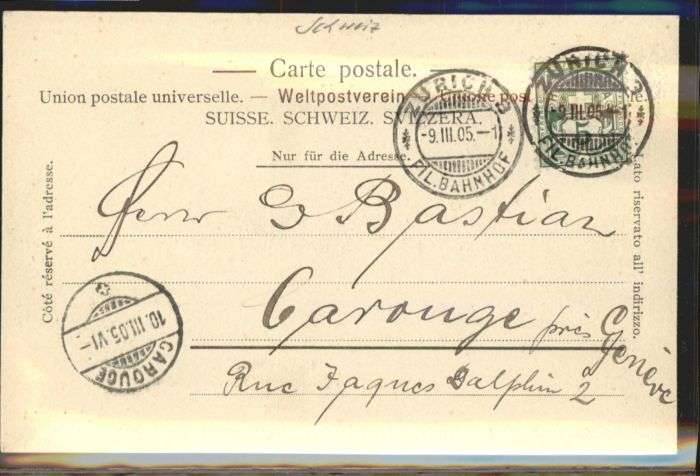 Schweiz
Carte postale.
Union postale universelle. — Weltpostverein
SUISSE. SCHWEIZ. SVIZZERA.
Nur für die Adresse.
ZÜRICH 3
-9.III.05.-1
FIL. BAHNHOF
ZÜRICH 3
-9.III.05.-1
FIL. BAHNHOF
5
Côté réservé à l'adresse.
Lato riservato all' indirizzo.
Herrn G Bastian
Carouge près Genève
Rue Jaques Dalphin 2
10.III.05.VI-
CAROUGE